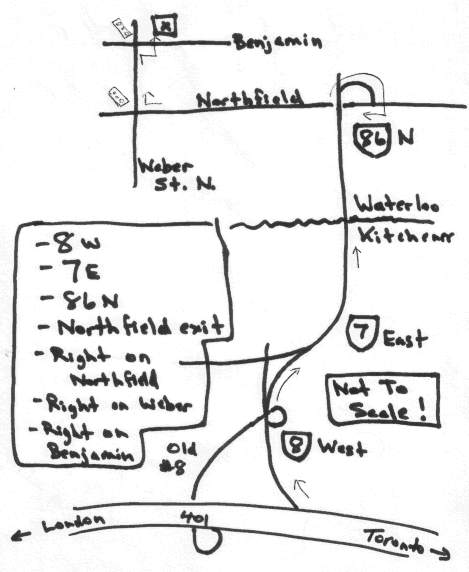 Benjamin
Northfield
86 N
Weber
St. N.
Waterloo
Kitchener
- 8 W
- 7 E
- 86 N
- Northfield exit
- Right on
Northfield
- Right on Weber
- Right on
Benjamin
7 East
Not To
Scale!
Old
#8
8 West
London
401
Toronto